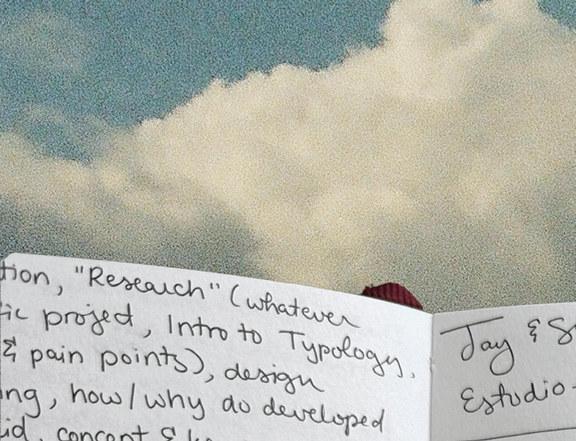 tion, "Research" (whatever
ic project, Intro to Typology,
& pain points), design
ing, how/why do developed
id, concept &
Jay & S
Estudio-